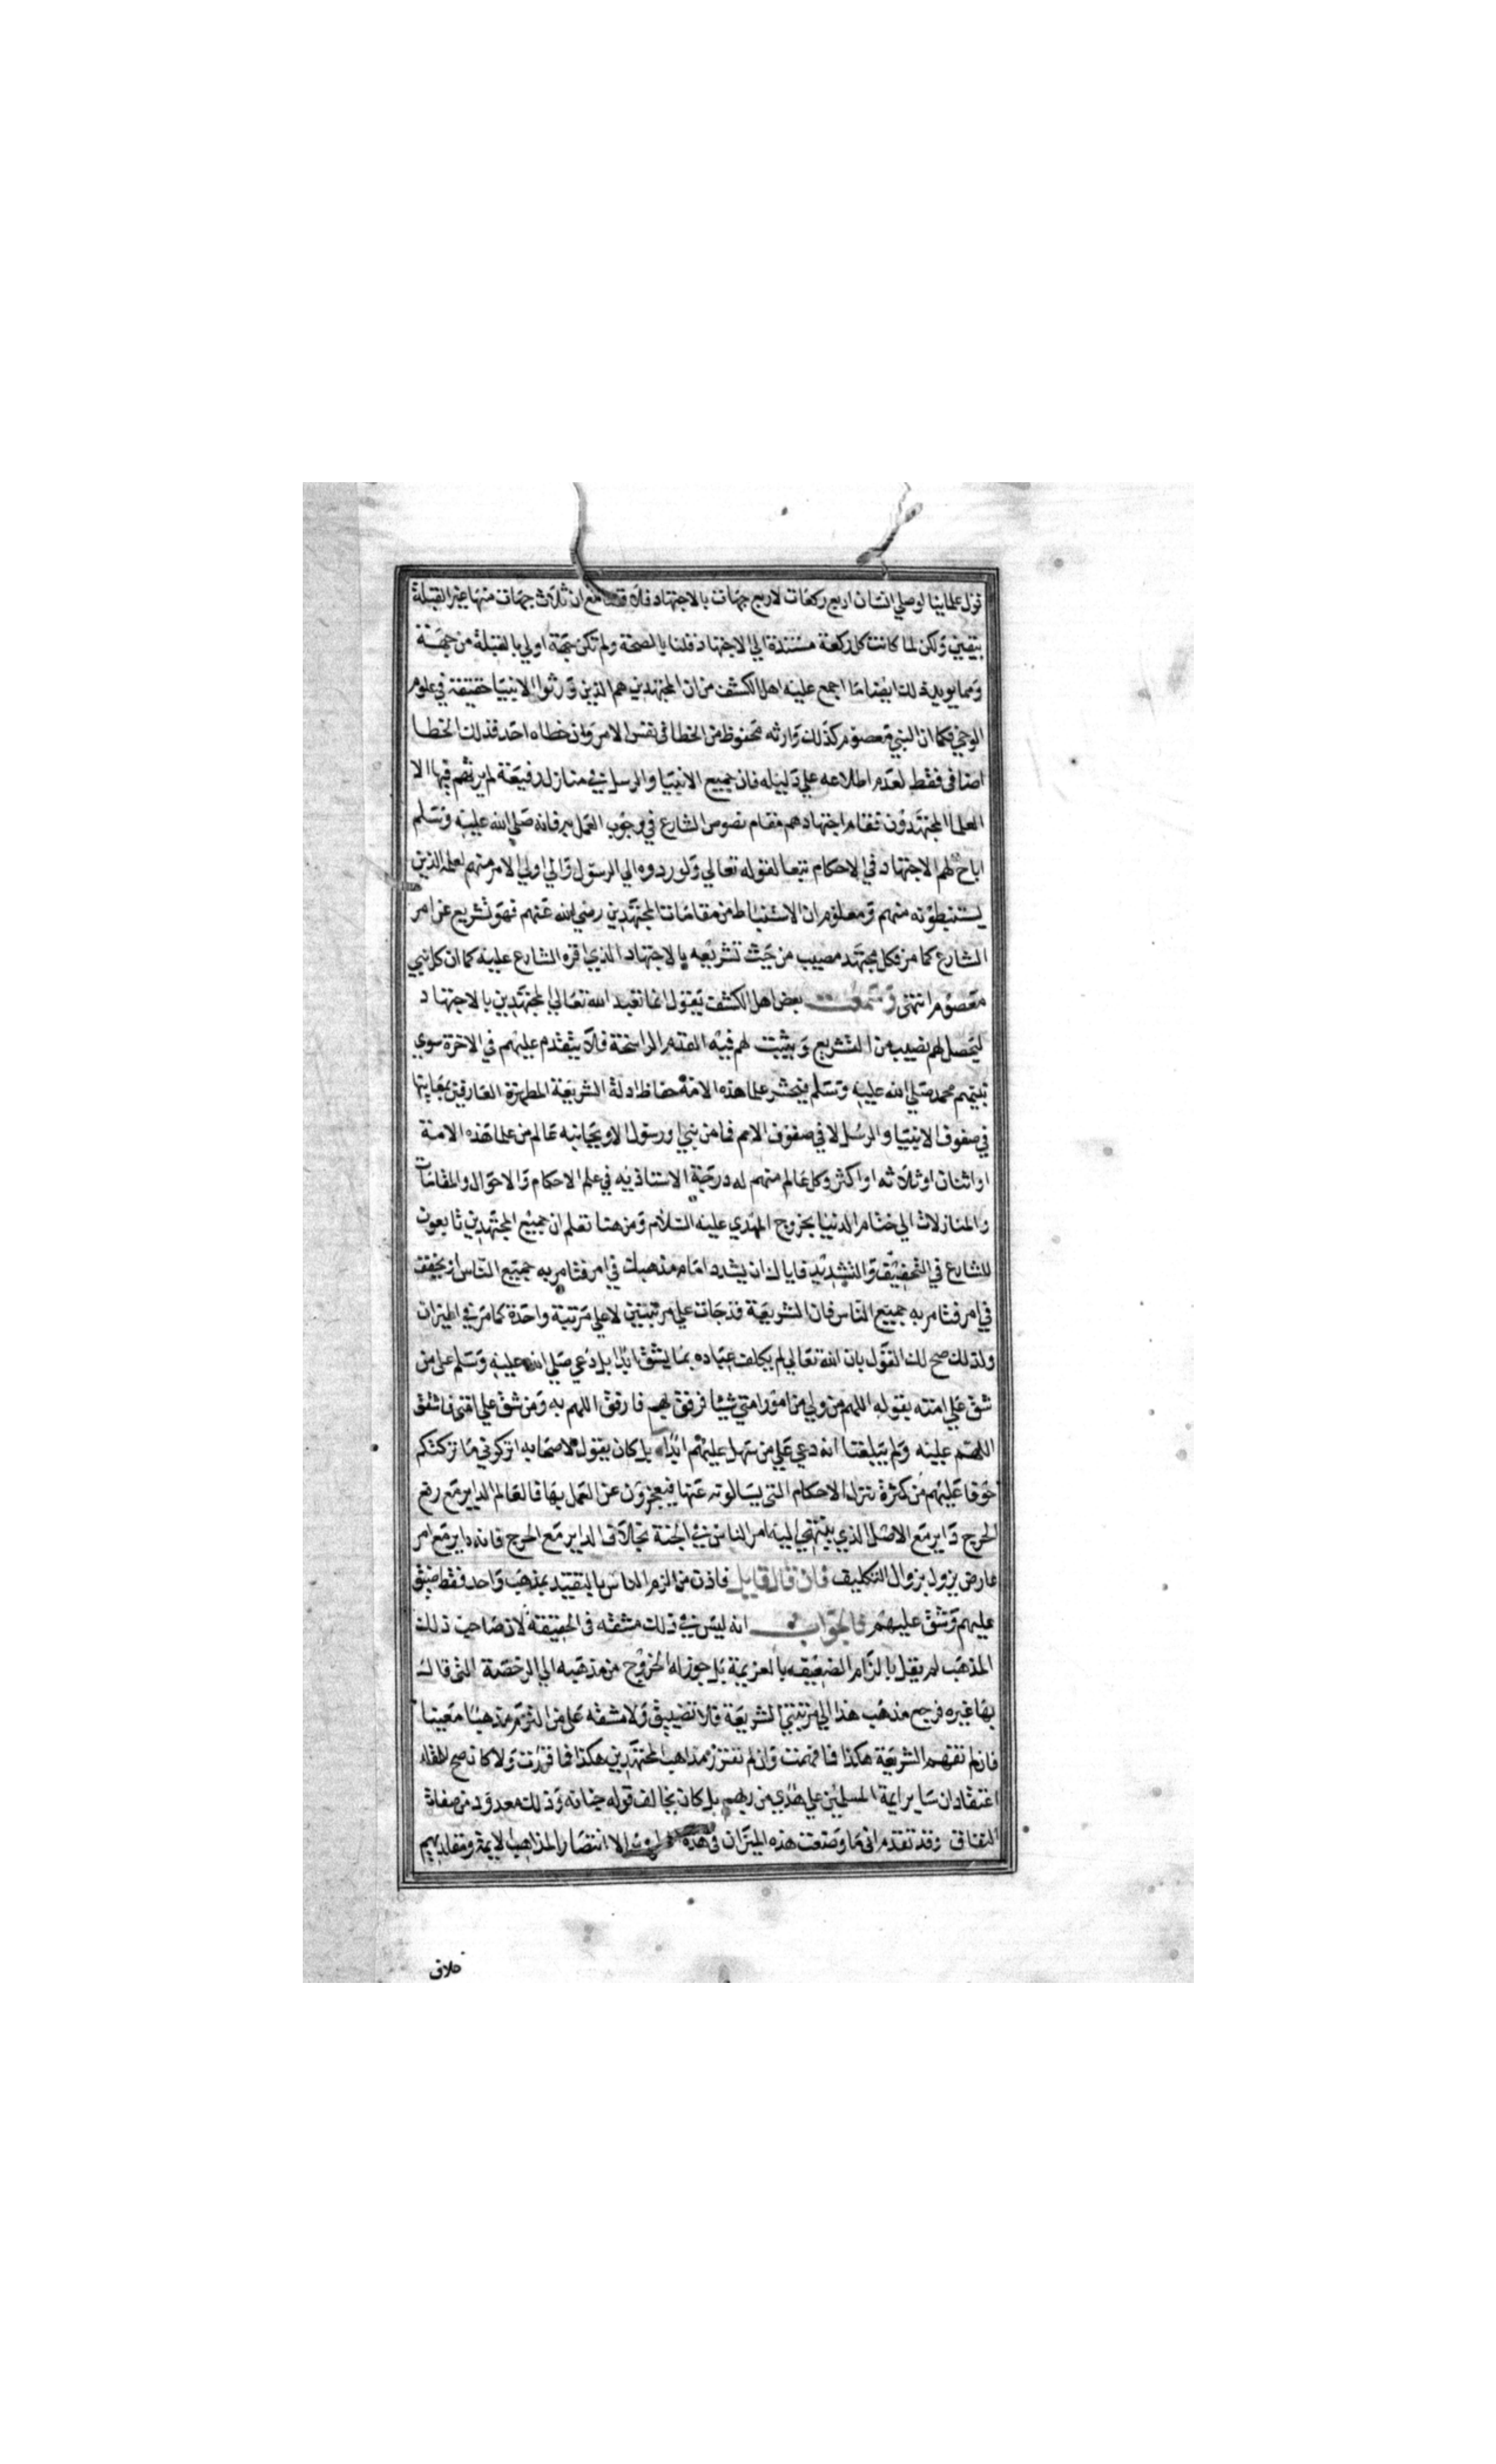 قول علماينا لوصلي انسان اربع ركعات لاربع جهات بالاجتهاد فلا قضا مع ان ثلاث جهات منها غير القبلة
بيقين ولكن لما كانت كل ركعة مستندة الي الاجتهاد قلنا بالصحة ولم تكن جهة اولي بالقبلة من جهة
ومما يويد ذلك ايضا ما اجمع عليه اهل الكشف من ان المجتهدين هم الذين ورثوا الانبيا حقيقة في علوم
الوحي فكما ان النبي معصوم كذلك وارثه محفوظ من الخطا في نفس الامر وان خطاه احد فذلك الخطا
اضافي فقط لعدم اطلاعه علي دليله فان جميع الانبيا والرسل في منازل رفيعة لم يرثهم فيها الا
العلما المجتهدون فقام اجتهادهم مقام نصوص الشارع في وجوب العمل به فانه صلي الله عليه وسلم
اباح لهم الاجتهاد في الاحكام تبعا لقوله تعالي ولو ردوه الي الرسول والي اولي الامر منهم لعلمه الذين
يستنبطونه منهم ومعلوم ان الاستنباط من مقامات المجتهدين رضي الله عنهم فهو تشريع عن امر
الشارع كما مر فكل مجتهد مصيب من حيث تشريعه بالاجتهاد الذي اقره الشارع عليه كما ان كل نبي
معصوم انتهي وسمعت بعض اهل الكشف يقول انما تعبد الله تعالي المجتهدين بالاجتهاد
ليحصل لهم نصيب من التشريع ويثبت لهم فيه القدم الراسخة فلا يتقدم عليهم في الاخرة سوي
نبيهم محمد صلي الله عليه وسلم فيحشر علما هذه الامة حفاظ ادلة الشريعة المطهرة العارفين بمعانيها
في صفوف الانبيا والرسل لا في صفوف الامم فما من نبي او رسول الا وبجانبه عالم من علما هذه الامة
او اثنان او ثلاثه او اكثر وكل عالم منهم له درجة الاستاذيه في علم الاحكام والاحوال والمقامات
والمنازلات الي ختام الدنيا بخروج المهدي عليه السلام ومن هنا تعلم ان جميع المجتهدين تابعون
للشارع في التخفيف والتشديد فاياك ان يشدد امام مذهبك في امر فتامر به جميع الناس او يخفف
في امر فتامر به جميع الناس فان الشريعة قد جات علي مرتبتين لا علي مرتبة واحدة كما مر في الميزان
ولذلك صح لك القول بان الله تعالي لم يكلف عباده بما يشق ابدا بل دعي صلي الله عليه وسلم علي من
شق علي امته بقوله اللهم من ولي من امور امتي شيئا فرفق بهم فارفق اللهم به ومن شق علي امتي فاشقق
اللهم عليه ولم يبلغنا انه دعي علي من سهل عليهم ابدا بل كان يقول لاصحابه اتركوني ما تركتكم
خوفا عليهم من كثرة تنزل الاحكام التي يسالونه عنها فيعجزون عن العمل بها فالعالم الداير مع رفع
الحرج داير مع الاصل الذي ينتهي اليه امر الناس في الجنة بخلاف الداير مع الحرج فانه داير مع امر
عارض يزول بزوال التكليف فان قال قايل فاذن من الزم الناس بالتقييد بمذهب واحد فقط ضيق
عليهم وشق عليهم فالجواب انه ليس في ذلك مشقه في الحقيقة لان صاحب ذلك
المذهب لم يقل بالزام الضعيف بالعزيمة بل جوز له الخروج من مذهبه الي الرخصة التي قال
بها غيره فرجع مذهب هذا الي مرتبتي الشريعة فلا تضييق ولا مشقه علي من التزم مذهبا معينا
فان لم تفهم الشريعة هكذا فما فهمت وان لم تقرر مذاهب المجتهدين هكذا فما قررت ولا كان صح للمقلد
اعتقاد ان ساير ايمة المسلمين علي هدي من ربهم بل كان يخالف قوله جنانه وذلك معدود من صفات
النفاق وقد تقدم اني ما وضعت هذه الميزان في هذه الا انتصارا لمذاهب الايمة ومقلديهم
خلاف